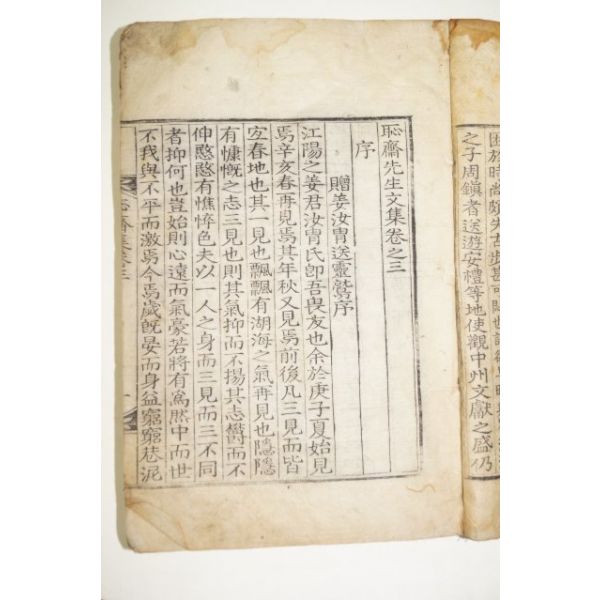 之子周鎮者送遊安禮等地使觀中州文獻之盛仍
恥齋先生文集卷之三
序
贈姜汝胄送靈鷲序
江陽之姜君汝胄氏卽吾畏友也余於庚子夏始見
焉辛亥春再見焉其年秋又見焉前後凡三見而皆
宐春地也其一見也飄飄有湖海之氣再見也隱隱
有慷慨之志三見也則其氣抑而不揚其志鬱而不
伸慇慇有憔悴色夫以一人之身而三見而三不同
者抑何也豈始則心遠而氣豪若將有爲然中而世
不我與不平而激焉今焉歲旣晏而身益窮窮巷泥